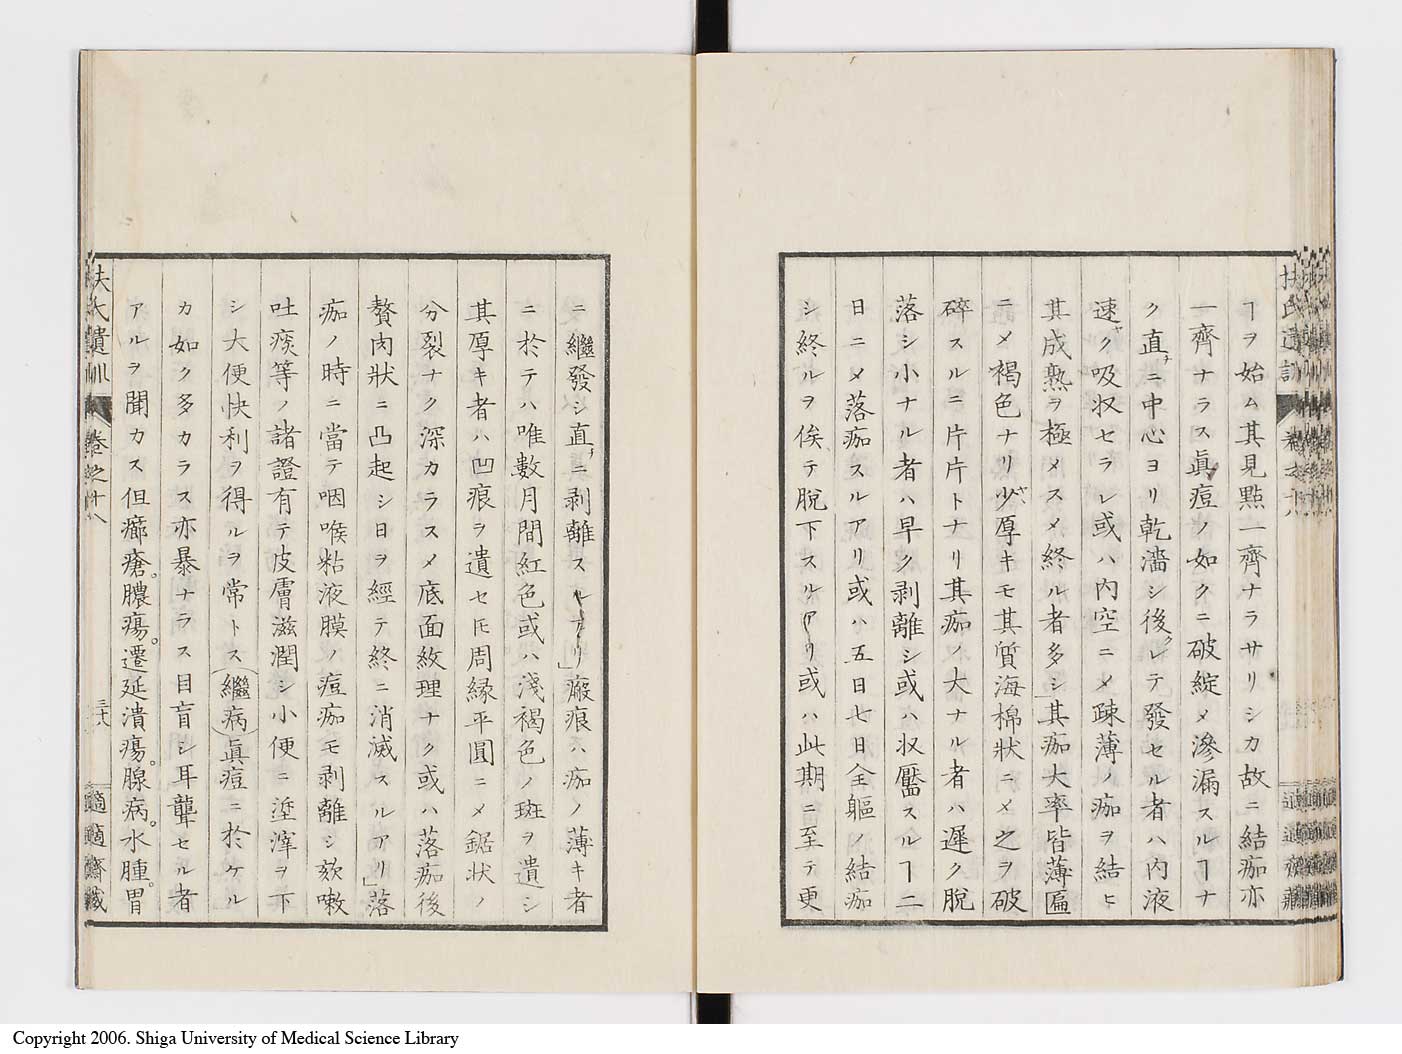 扶氏遺訓 卷之十八
ヿヲ始ム其見點一齊ナラサリシカ故ニ結痂亦
一齊ナラス眞痘ノ如クニ破綻メ滲漏スルヿナ
ク直チニ中心ヨリ乾濇シ後クレテ發セル者ハ内液
速ヤク吸収セラレ或ハ内空ニメ疎薄ノ痂ヲ結ヒ
其成熟ヲ極メスメ終ル者多シ其痂大率皆薄匾
ニメ褐色ナリ少ヤ厚キモ其質海棉狀ニメ之ヲ破
碎スルニ片片トナリ其痂ノ大ナル者ハ遲ク脱
落シ小ナル者ハ早ク剥離シ或ハ収靨スルヿ二
日ニメ落痂スルアリ或ハ五日七日全軀ノ結痂
シ終ルヲ俟テ脱下スルアリ或ハ此期ニ至テ更
ニ繼發シ直チニ剥離スルアリ」瘢痕ハ痂ノ薄キ者
ニ於テハ唯數月間紅色或ハ淺褐色ノ斑ヲ遺シ
其厚キ者ハ凹痕ヲ遺セ𪜈周縁平圓ニメ鋸状ノ
分裂ナク深カラスメ底面紋理ナク或ハ落痂後
贅肉狀ニ凸起シ日ヲ經テ終ニ消滅スルアリ」落
痂ノ時ニ當テ咽喉粘液膜ノ痘痂モ剥離シ欬嗽
吐痰等ノ諸證有テ皮膚滋潤シ小便ニ垽滓ヲ下
シ大便快利ヲ得ルヲ常トス(繼病)眞痘ニ於ケル
カ如ク多カラス亦暴ナラス目盲シ耳聾セル者
アルヲ聞カス但癤瘡。膿瘍。遷延潰瘍。腺病。水腫。胃
扶氏遺訓 卷之十八 三十八 適適齋藏
Copyright 2006. Shiga University of Medical Science Library